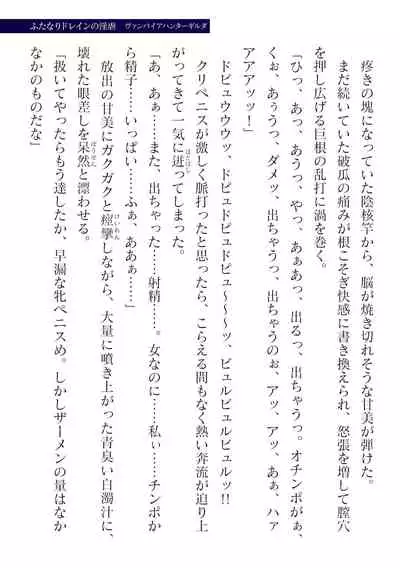 ふたなりドレインの淫虐　ヴァンパイアハンターギルダ
疼きの塊になっていた陰核竿から、脳が焼き切れそうな甘美が弾けた。
まだ続いていた破瓜の痛みが根こそぎ快感に書き換えられ、怒張を増して膣穴
を押し広げる巨根の乱打に渦を巻く。
「ひっ、あっ、あうっ、やっ、あぁあっ、出るっ、出ちゃうっ。オチンポがぁ、
くぉ、あぅうっ、ダメッ、出ちゃうっ、出ちゃうのぉ、アッ、アッ、あぁ、ハァ
アアアッッ！」
ドビュウウウッ、ドビュドビュドビュ～～～ッ、ビュルビュルビュルッ!!
クリペニスが激しく脈打ったと思ったら、こらえる間もなく熱い奔流が迫り上
がってきて一気に迸ってしまった。
「あ、あぁ……また、出ちゃった……射精……。女なのに……私ぃ……チンポか
ら精子……いっぱい……ふぁ、ああぁ……」
放出の甘美にガクガクと痙攣しながら、大量に噴き上がった青臭い白濁汁に、
壊れた眼差しを呆然と漂わせる。
「扱いてやったらもう達したか、早漏な牝ペニスめ。しかしザーメンの量はなか
なかのものだな」